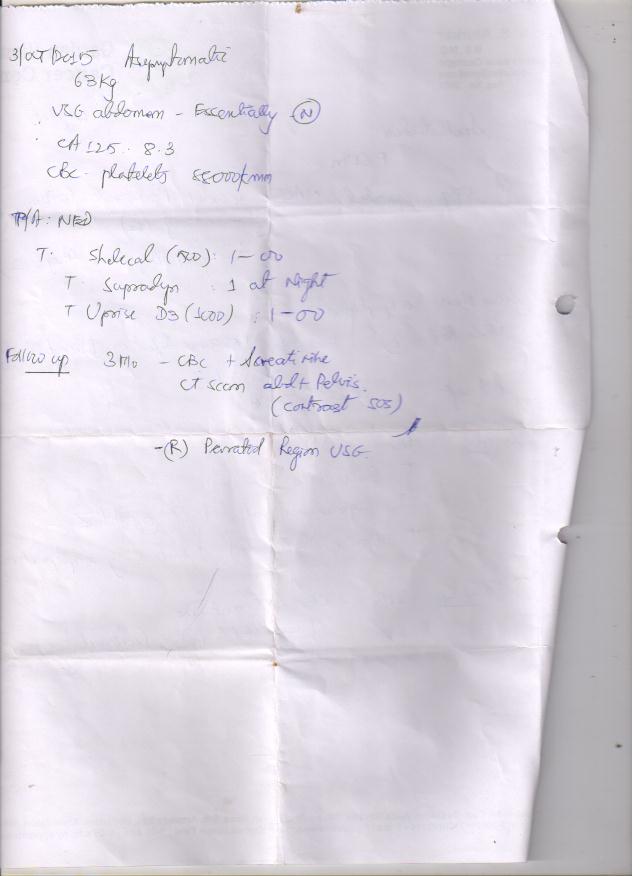 3/OCT/2015 Asymptomatic
63Kg
USG abdomen - Essentially (N)
CA 125 . 8.3
CBC - platelets 88000/cmm
P/A : NED
T. Shelcal (500) : 1-00
T Supradyn : 1 at Night
T Uprise D3 (1000) : 1-00
Follow up 3Mo - CBC + S creatinine
CT scan abd + Pelvis.
(contrast SOS)
-(R) Region USG.